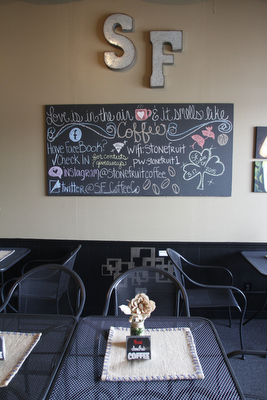 SF
Love is in the air & it smells like
Coffee
Have FaceBook?
✓Check IN for contests giveaways
wifi: Stonefruit
pw: stonefruit1
INSTAGRAM@Stonefruitcoffee
twitter@SF_CoffeeCo
COFFEE